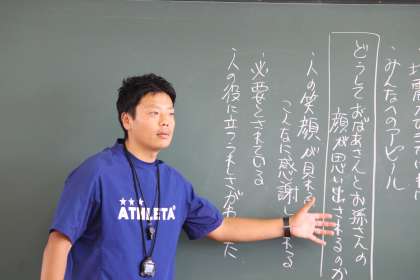 みんなへのアピール
どうしておばあさんとお孫さんの
顔が思い出されるのか
人の笑顔が見れ
こんなに感謝し れる
必要とされている
人の役に立つうれしさがわ た
ATHLETA